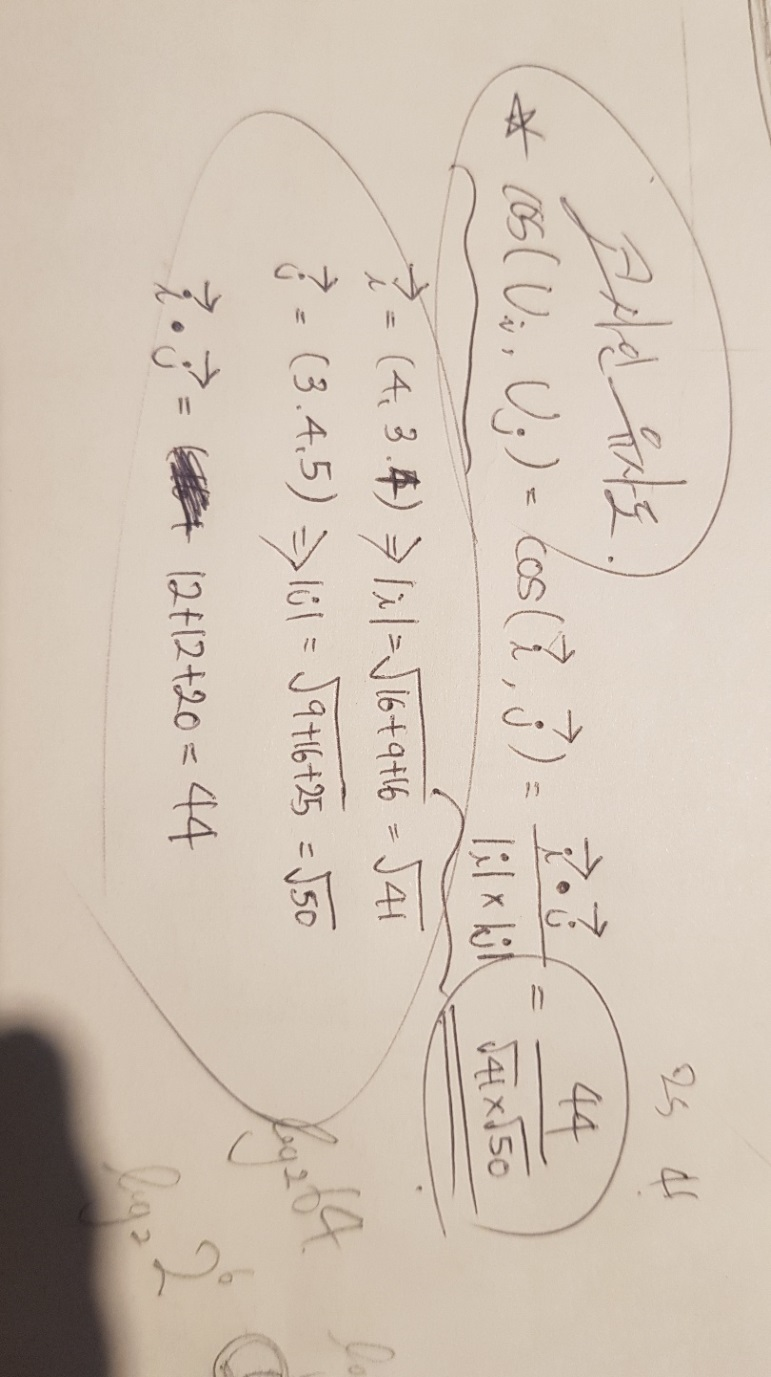 코사인 유사도.
☆ cos(Uᵢ, Uⱼ) = cos(i⃗, j⃗) = i⃗•j⃗ / |i|×|j| = 44 / √41×√50
i⃗ = (4, 3.4) ⇒ |i| = √16+9+16 = √41
j⃗ = (3.4,5) ⇒ |j| = √9+16+25 = √50
i⃗•j⃗ = 12+12+20 = 44
log₂64
log₂2⁶